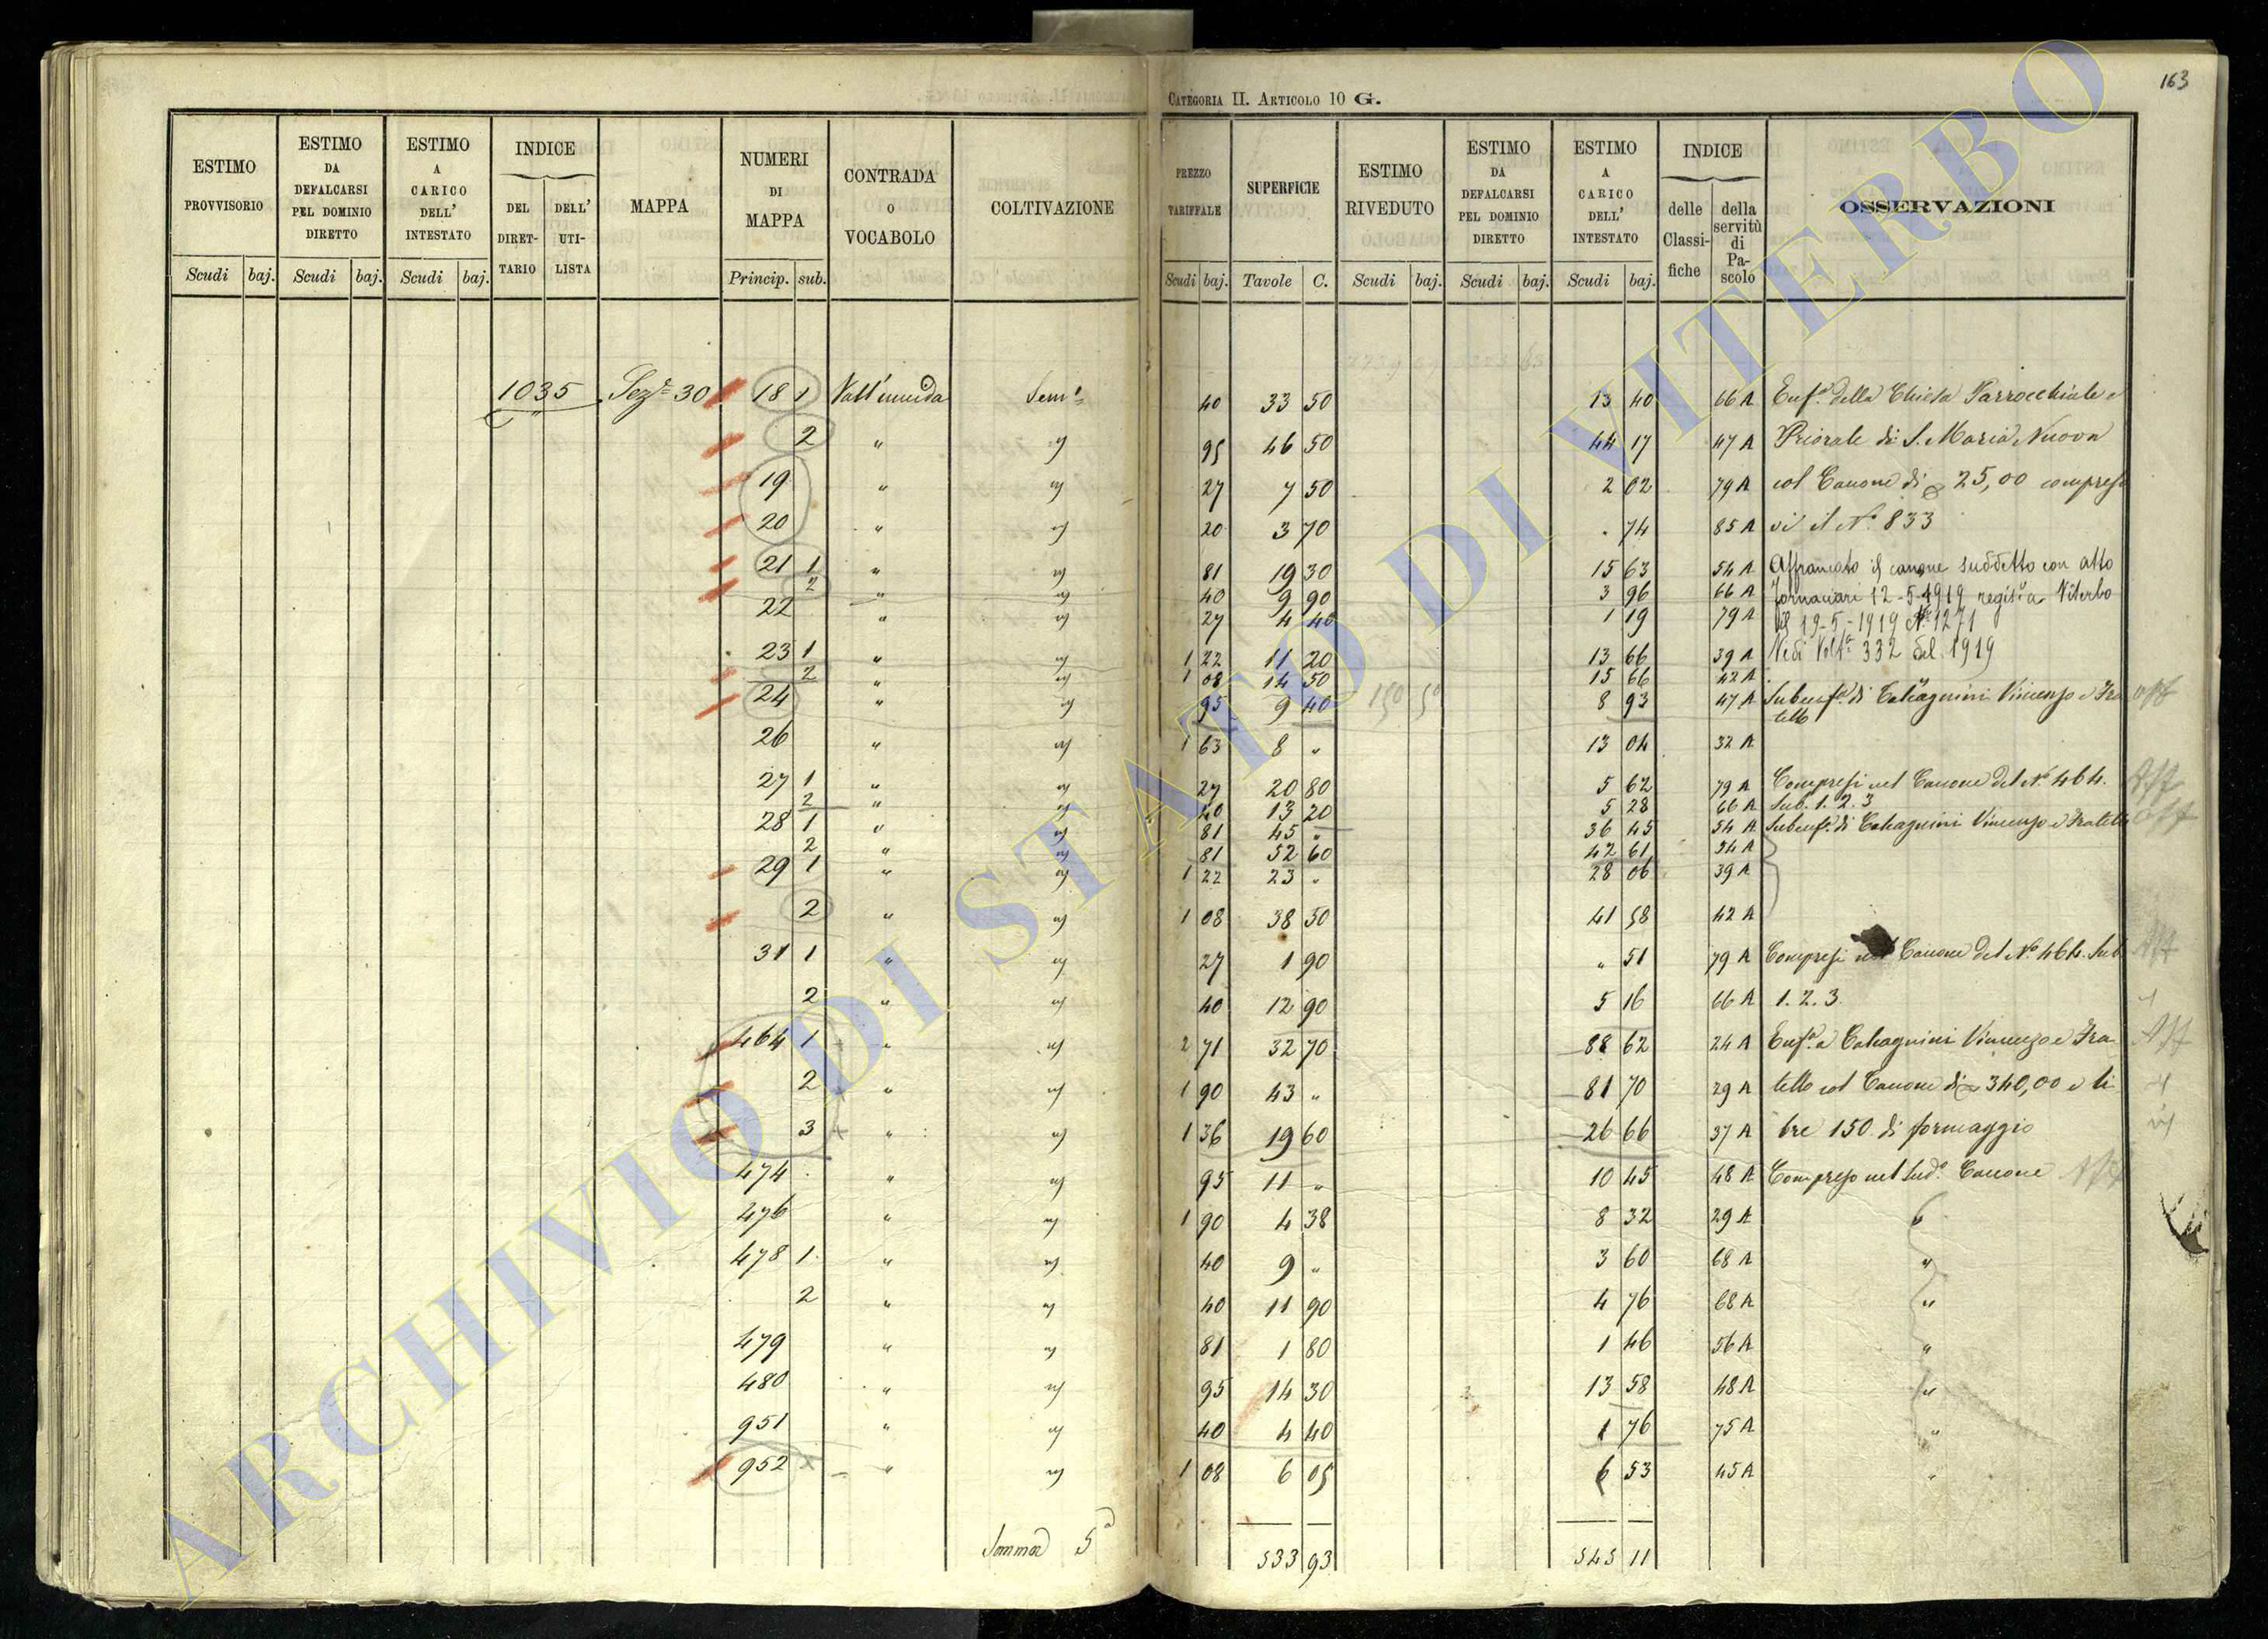 163
CATEGORIA II. ARTICOLO 10 G.
ESTIMO PROVVISORIO | ESTIMO DA DEFALCARSI PEL DOMINIO DIRETTO | ESTIMO A CARICO DELL' INTESTATO | INDICE | MAPPA | NUMERI DI MAPPA | CONTRADA O VOCABOLO | COLTIVAZIONE | PREZZO TARIFFALE | SUPERFICIE | ESTIMO RIVEDUTO | ESTIMO DA DEFALCARSI PEL DOMINIO DIRETTO | ESTIMO A CARICO DELL' INTESTATO | INDICE | OSSERVAZIONI
DEL DIRETTARIO | DELL' UTILISTA | delle Classifiche | della servitù di Pascolo
Scudi baj. | Scudi baj. | Scudi baj. | Princip. sub. | Scudi baj. | Tavole C. | Scudi baj. | Scudi baj. | Scudi baj.
1035 Sez.e 30 18 1 Sem.o 40 33 50 13 40 66 A Enf.a della Chiesa Parrocchiale e
2 " " 95 46 50 44 17 47 A Priorale di S. Maria Nuova
19 " " 27 7 50 2 02 79 A col Canone di 25,00 compreso
20 " " 20 3 70 . 74 85 A vi il N.o 833
21 1 " " 81 19 30 15 63 54 A Affrancato il canone suddetto con atto
2 " " 40 9 90 3 96 66 A Fornaciari 12-5-1919 regist.o a Viterbo
22 " " 27 4 40 1 19 79 A il 19-5-1919 N.o 1271
23 1 " " 1 22 11 20 13 66 39 A Vedi Volt.a 332 del 1919
2 " " 1 08 14 50 15 66 42 A
24 " " 95 9 40 8 93 47 A Subenf.a di Calcagnini Vincenzo e Fra
tello
26 " " 1 63 8 " 13 04 32 A
27 1 " " 27 20 80 5 62 79 A Compresi nel Canone del N.o 464. Aff
2 " " 40 13 20 5 28 66 A Sub. 1. 2. 3
28 1 " " 81 45 " 36 45 54 A Subenf.a di Calcagnini Vincenzo e Fratello Aff
2 " " 81 52 60 42 61 54 A
29 1 " " 1 22 23 " 28 06 39 A
2 " " 1 08 38 50 41 58 42 A
31 1 " " 27 1 90 " 51 79 A Compresi nel Canone del N.o 464. Sub. Aff
2 " " 40 12 90 5 16 66 A 1. 2. 3.
464 1 " " 2 71 32 70 88 62 24 A Enf.a a Calcagnini Vincenzo e Fra- Aff
2 " " 1 90 43 " 81 70 29 A tello col Canone di 340,00 e li
3 " " 1 36 19 60 26 66 37 A bre 150 di formaggio
474 " " 95 11 " 10 45 48 A Compreso nel Sud.o Canone Aff
476 " " 1 90 4 38 8 32 29 A "
478 1 " " 40 9 " 3 60 68 A "
2 " " 40 11 90 4 76 68 A "
479 " " 81 1 80 1 46 56 A "
480 " " 95 14 30 13 58 48 A "
951 " " 40 4 40 1 76 75 A "
952 " " 1 08 6 05 6 53 45 A "
Somma 5a 533 93 545 11
ARCHIVIO DI STATO DI VITERBO